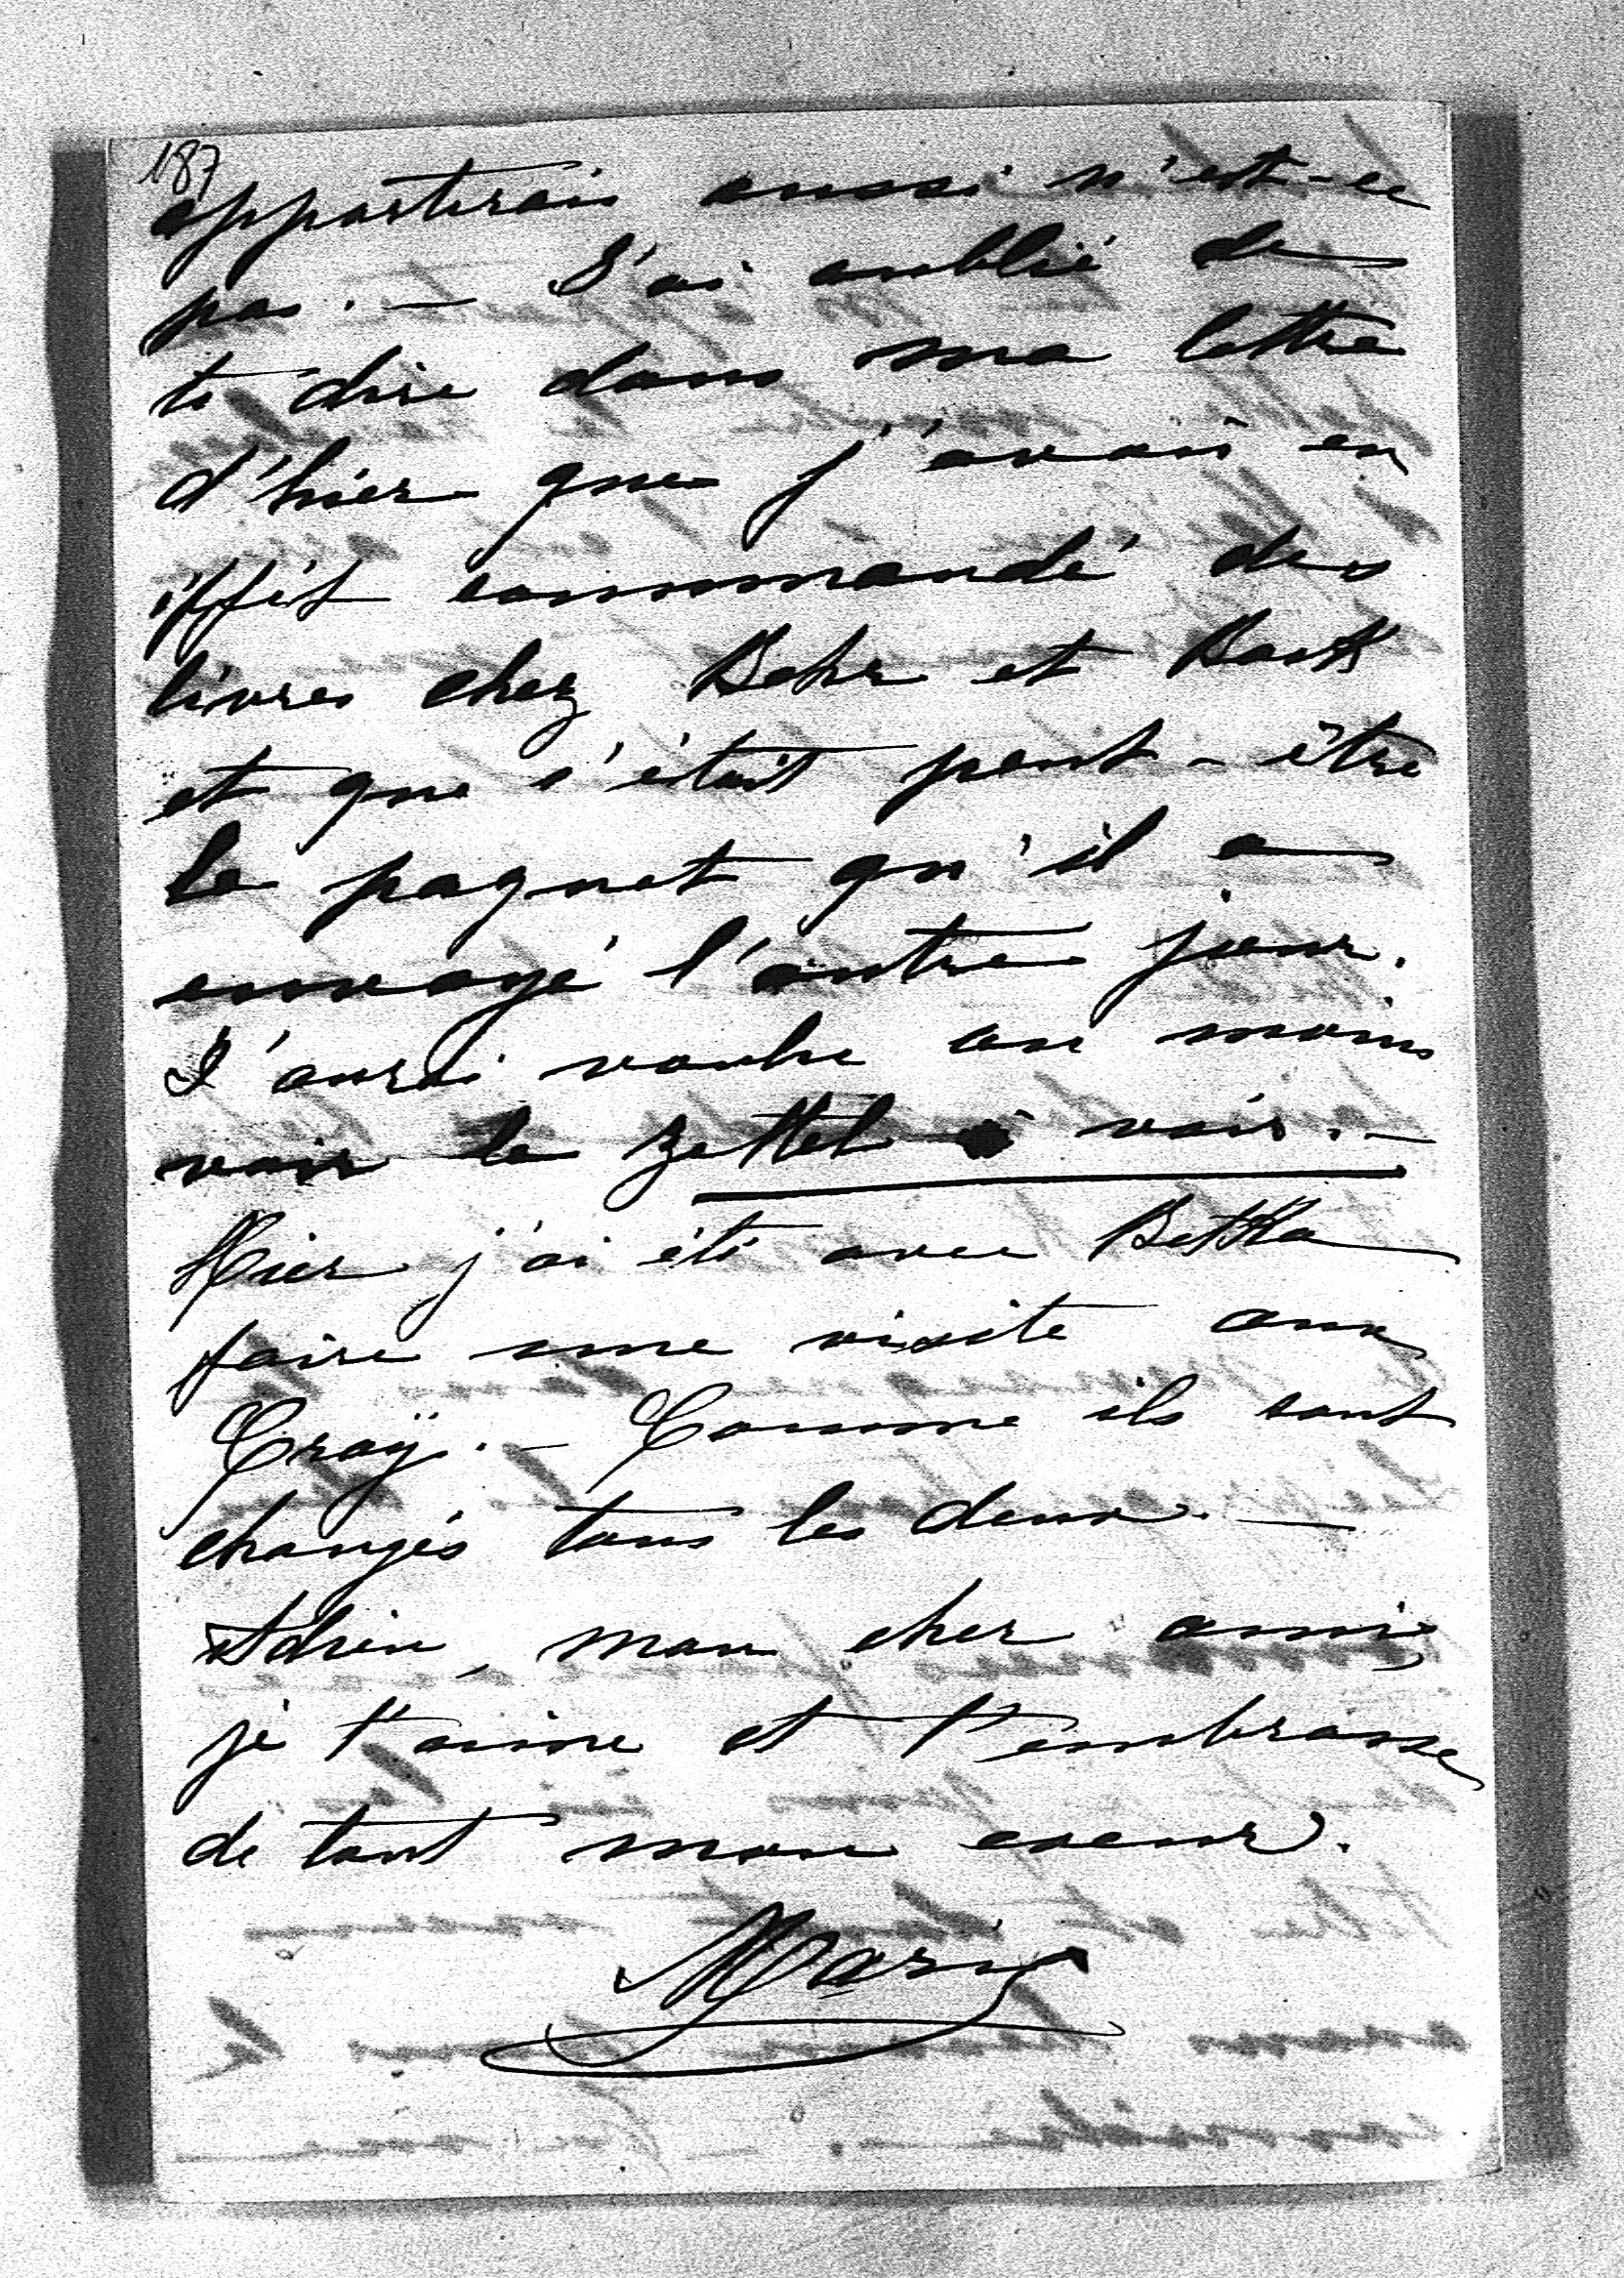 187
apporterais aussi n'est-ce
pas. — J'ai oublié de
te dire dans ma lettre
d'hier que j'avais en
effet commandé des
livres chez Behr et Bock
et que c'était peut-être
le paquet qu'il a
envoyé l'autre jour.
J'aurai voulu au moins
voir le Zettel à voir. —
Hier j'ai été avec Betka
faire une visite aux
Croÿ. — Comme ils sont
changés tous les deux. —
Adieu, mon cher ami,
je t'aime et t'embrasse
de tout mon coeur.
Marie